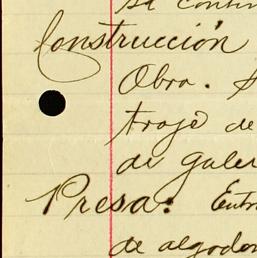 se contin
Construcción
Obra.
traje de
de galer
Presa: Entr
de algodon